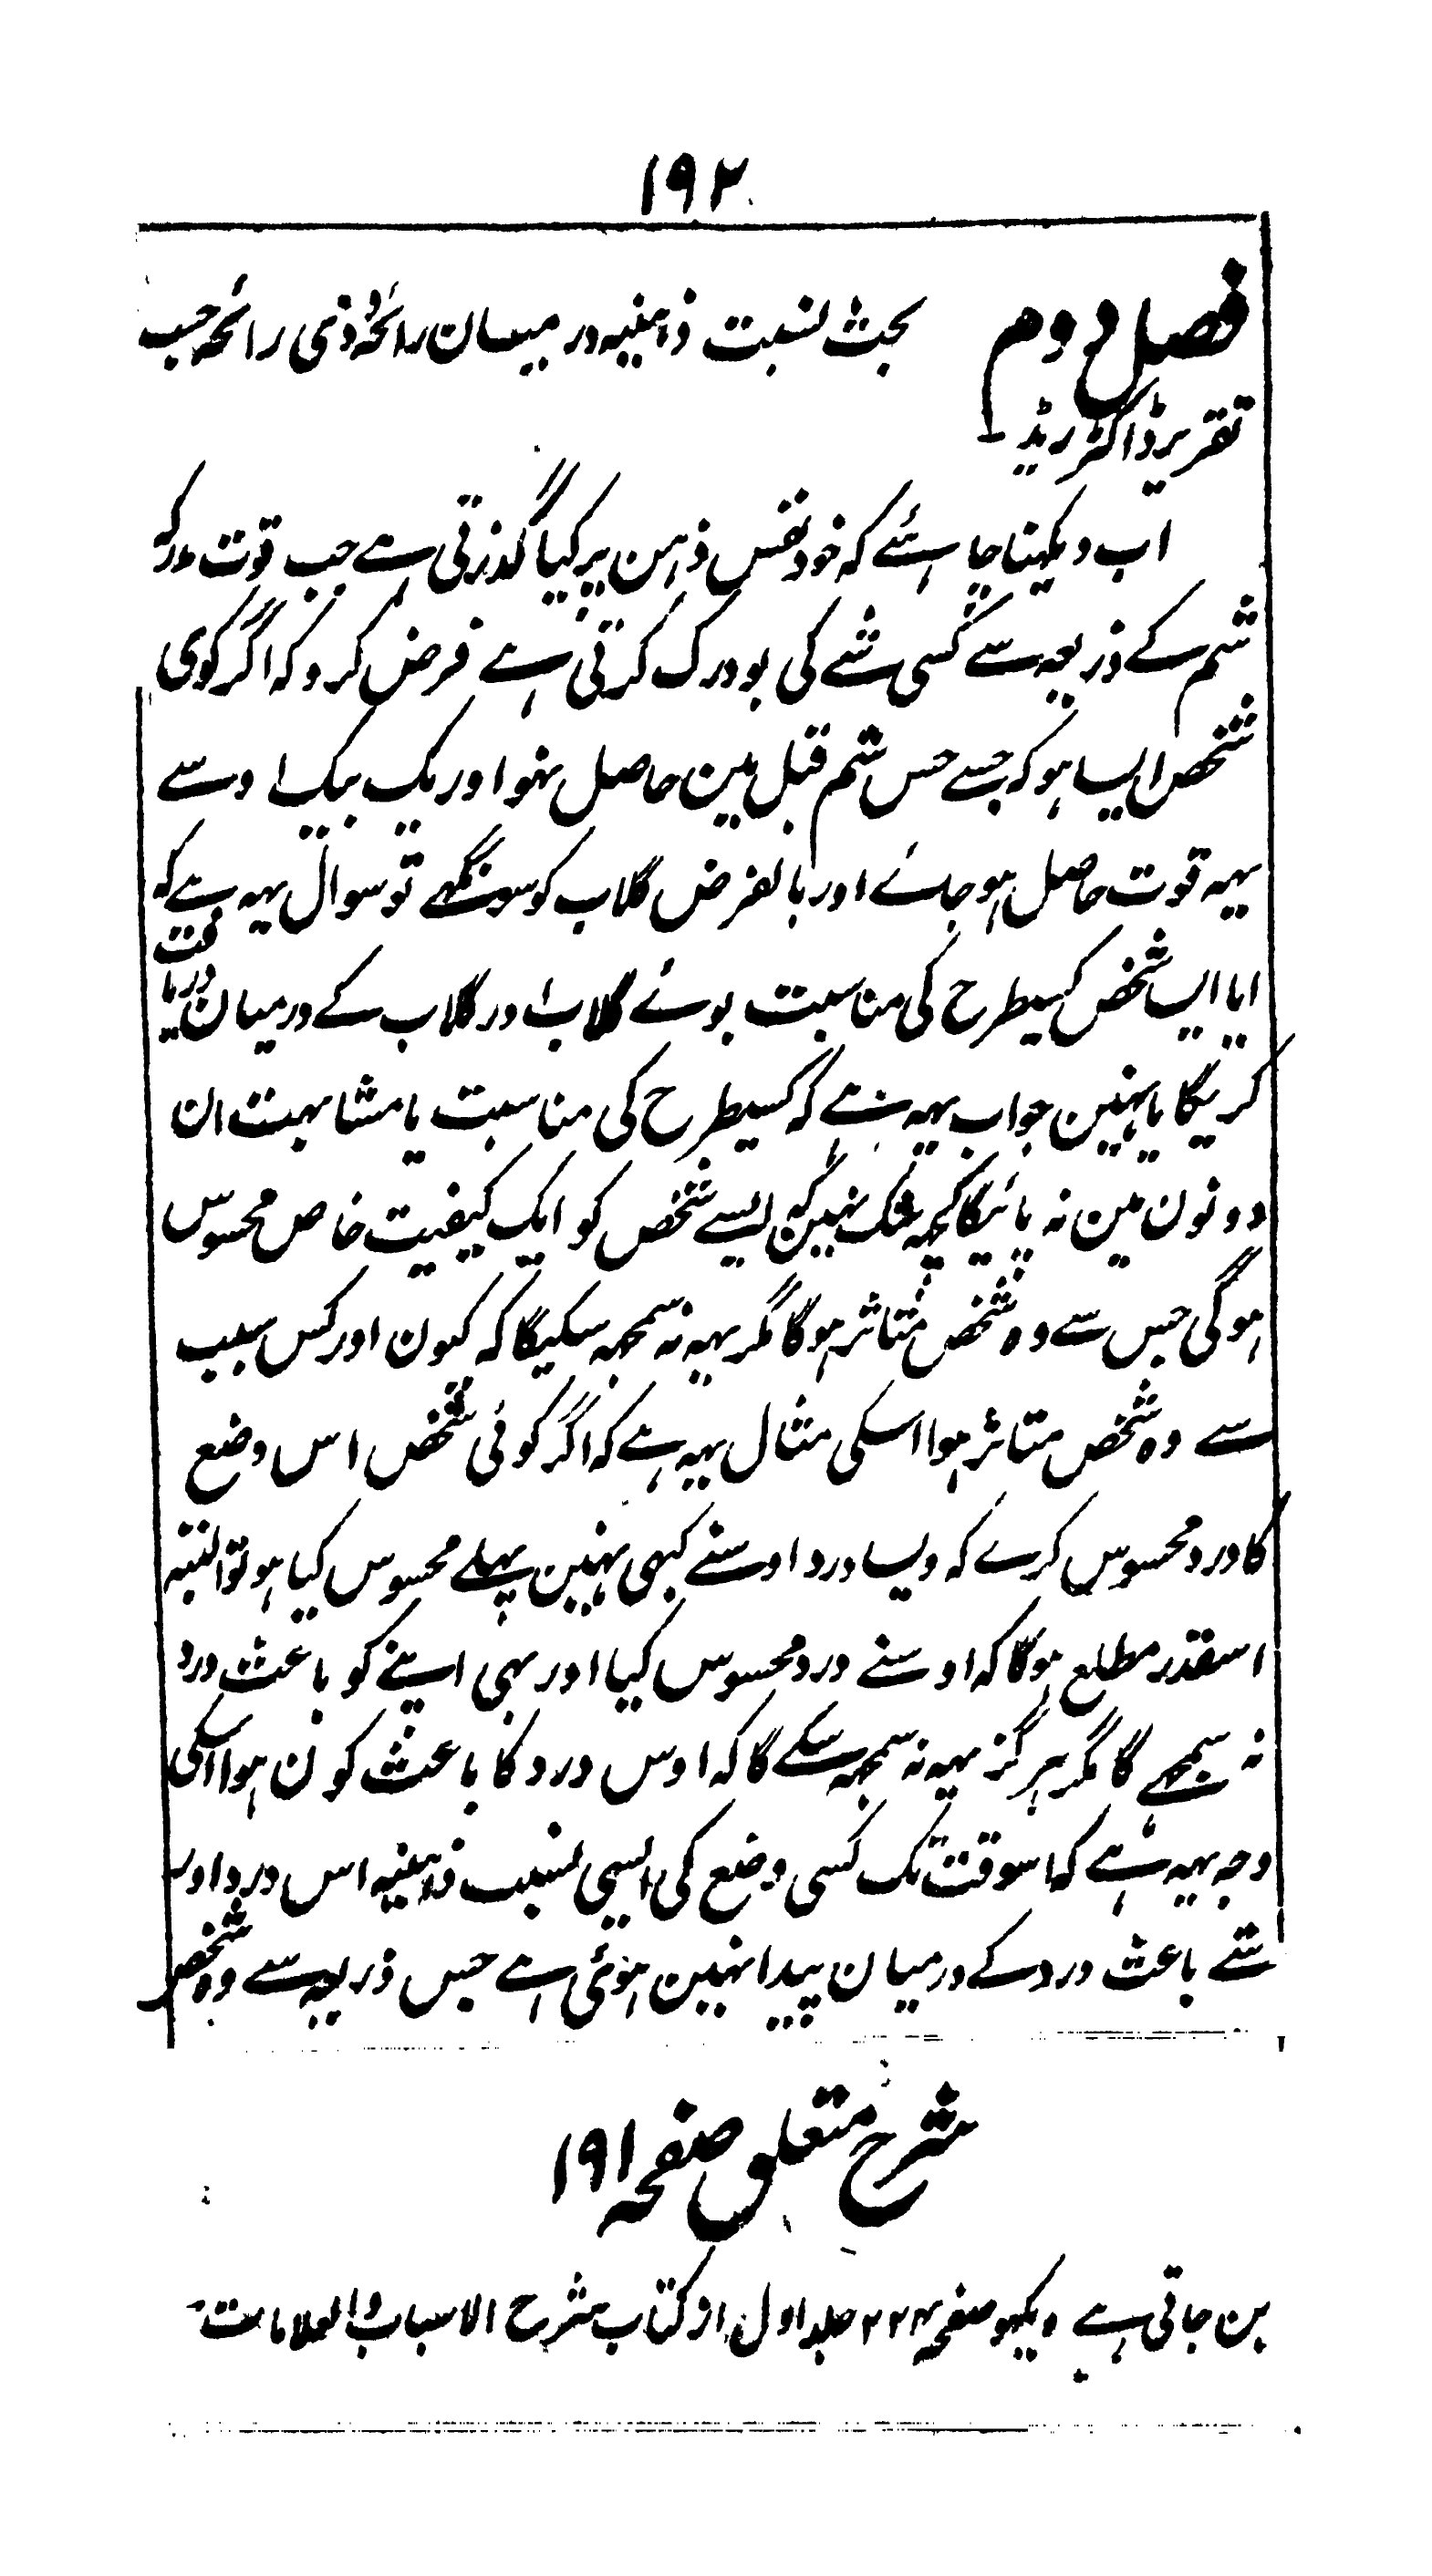 ۱۹۲
فصل دوم بحث نسبت ذہنیہ درمیان رائحہ و ذی رائحہ حسب
تقریر ڈاکٹر ریڈ۔
اب دیکھنا چاہئے کہ خود نفس ذہن پر کیا گذرتی ہے جب قوت مدرکہ
شم کے ذریعہ سے کسی شے کی بو درک کرتی ہے فرض کرو کہ اگر کوی
شخص ایسا ہو کہ جسے حس شم قبل مین حاصل نہو اور یک بیک اوسے
یہہ قوت حاصل ہو جائے اور بالفرض گلاب کو سونگھے تو سوال یہہ ہے کہ
ایا ایسا شخص کسیطرح کی مناسبت بوئے گلاب اور گلاب کے درمیان دریافت
کریگا یا نہین جواب یہہ ہے کہ کسیطرح کی مناسبت یا مشابہت ان
دونون مین نہ پائیگا کچہہ شک نہین کہ ایسے شخص کو ایک کیفیت خاص محسوس
ہوگی جس سے وہ شخص متاثر ہوگا مگر یہہ نہ سمجہہ سکیگا کہ کیون اور کس سبب
سے وہ شخص متاثر ہوا اسکی مثال یہہ ہے کہ اگر کوئی شخص اس وضع
کا درد محسوس کرے کہ ویسا درد اوسنے کبھی نہین پہلے محسوس کیا ہو تو البتہ
اسقدر مطلع ہوگا کہ اوسنے درد محسوس کیا اور بہی اپنے کو باعث درد
نہ سمجھے گا مگر ہرگز یہہ نہ سمجہہ سکے گا کہ اوس درد کا باعث کون ہوا اسکی
وجہ یہہ ہے کہ اسوقت تک کسی وضع کی ایسی نسبت ذہنیہ اس درد اور
شے باعث درد کے درمیان پیدا نہین ہوئی ہے جس ذریعہ سے وہ شخص
شرح متعلق صفحہ ۱۹۱
بن جاتی ہے دیکھو صفحہ ۲۲۴ جلد اول از کتاب شرح الاسباب والعلامات۔